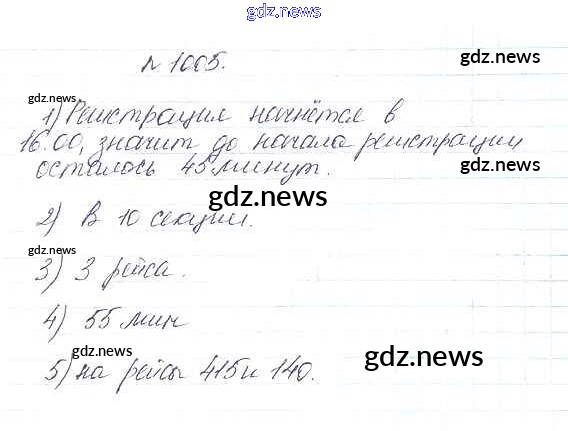 gdz.news
№ 1005.
gdz.news
gdz.news
1) Регистрация начнётся в
16.00, значит до начала регистрации
осталось 45 минут.
gdz.news
2) В 10 секции.
gdz.news
3) 3 рейса.
4) 55 мин
gdz.news
gdz.news
5) на рейсы 415 и 140.